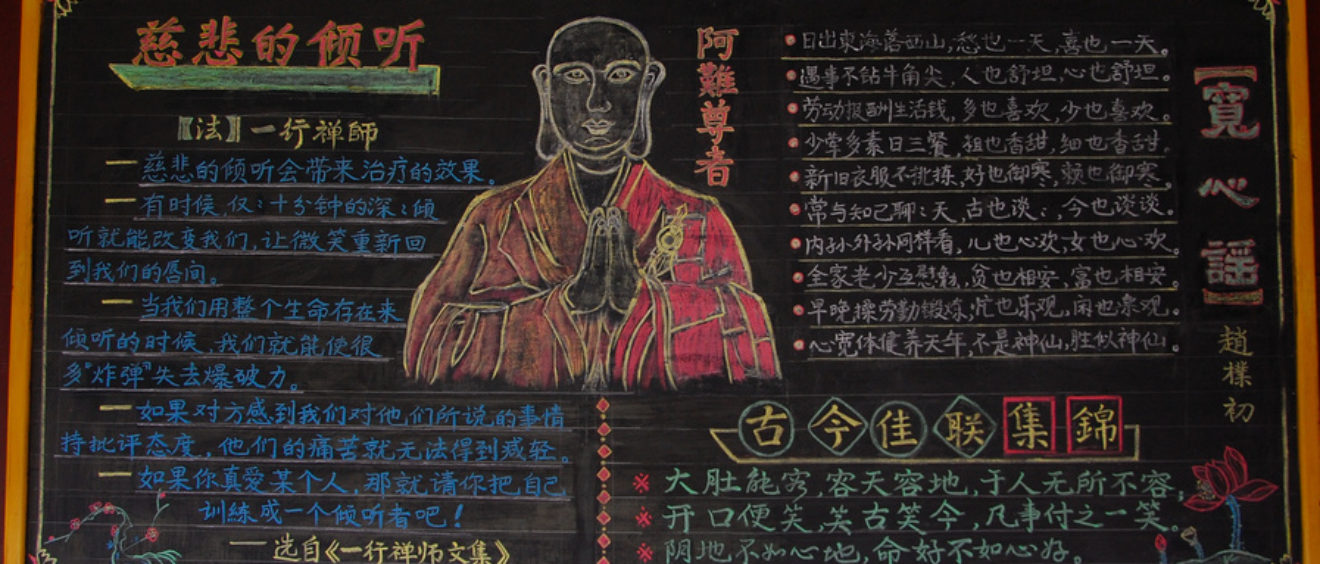 慈悲的倾听
【法】一行禅師
一慈悲的倾听会带来治疗的效果。
一有时候,仅:十分钟的深:倾
听就能改变我们,让微笑重新回
到我们的唇间。
一当我们用整个生命存在来
倾听的时候,我们就能使很
多"炸弹"失去爆破力。
一如果对方感到我们对他们所说的事情
持批评态度,他们的痛苦就无法得到减轻。
一如果你真愛某个人,那就请你把自己
训練成一个倾听者吧!
一选自《一行禅师文集》
阿難尊者
日出東海落西山,愁也一天,喜也一天。
遇事不钻牛角尖,人也舒坦,心也舒坦。
劳动报酬生活钱,多也喜欢,少也喜欢。
少荤多素日三餐,粗也香甜,细也香甜。
新旧衣服不挑拣,好也御寒,赖也御寒。
常与知己聊:天,古也谈:,今也谈谈。
内孙外孙同样看,儿也心欢,女也心欢。
全家老少互慰勉,贫也相安,富也相安。
早晚操劳勤锻炼,忙也乐观,闲也乐观。
心宽体健养天年,不是神仙,胜似神仙。
【寬心謡】
趙樸初
古今佳联集錦
※大肚能容,容天容地,于人无所不容;
※开口便笑,笑古笑今,凡事付之一笑。
※阴地不如心地,命好不如心好。